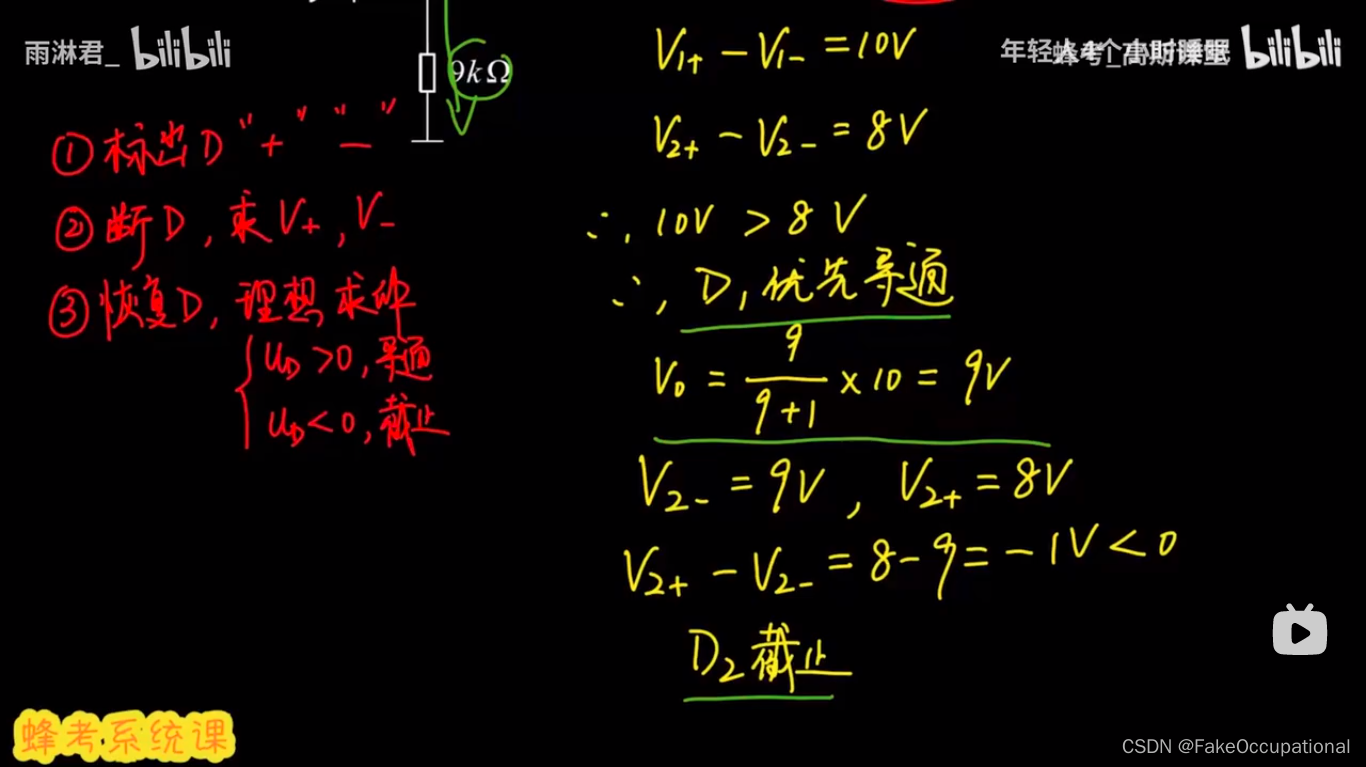 雨淋君_ bilibili
年轻人4个 bilibili
9kΩ
① 标出 D "+" "-"
② 断D, 求V₊, V₋
③ 恢复D, 理想, 求解
U_D > 0, 导通
U_D < 0, 截止
V₁₊ - V₁₋ = 10V
V₂₊ - V₂₋ = 8V
∴, 10V > 8V
∴, D₁优先导通
V₀ = 9/(9+1) × 10 = 9V
V₂₋ = 9V, V₂₊ = 8V
V₂₊ - V₂₋ = 8-9 = -1V < 0
D₂截止
蜂考系统课
CSDN @FakeOccupational